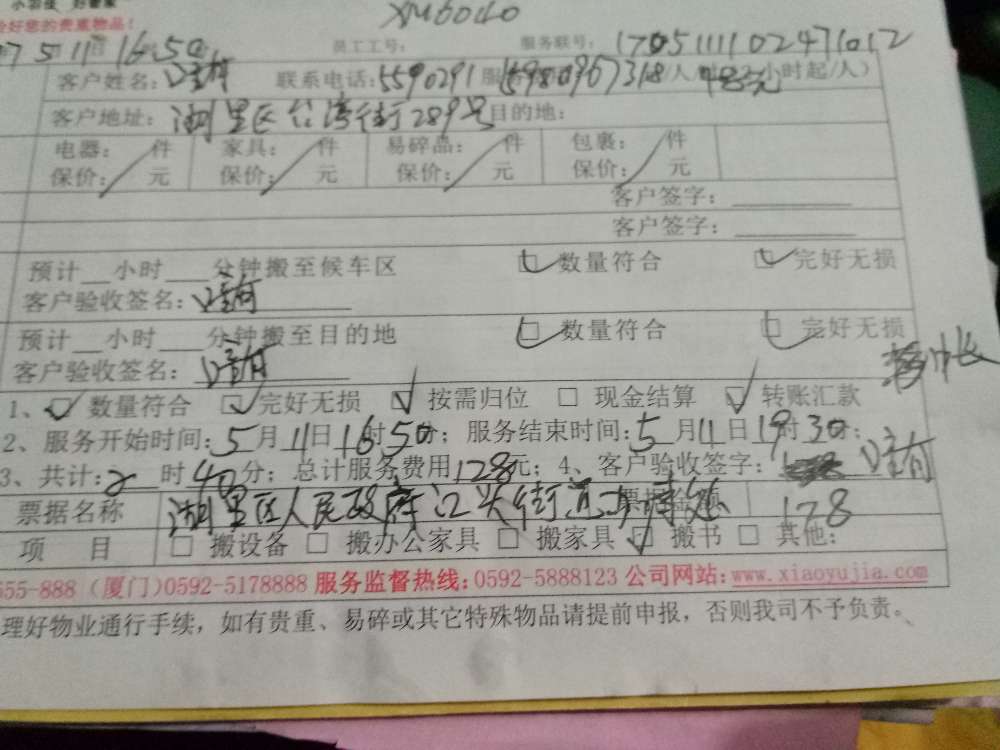 小羽佳 好管家
您的贵重物品!
XM6040
7 5 11日 16:50 员工工号: 服务联号: 1705111102471012
客户姓名: 联系电话:5590291 /人 小时起/人)
客户地址: 湖里区台湾街289号 目的地:
电器: 件 家具: 件 易碎品: 件 包裹: 件
保价: 元 保价: 元 保价: 元 保价: 元
客户签字:
客户签字:
预计__小时___分钟搬至候车区 数量符合 完好无损
客户验收签名:
预计__小时___分钟搬至目的地 数量符合 完好无损
客户验收签名:
1、 数量符合 完好无损 按需归位 现金结算 转账汇款
2、服务开始时间:5月11日16时50分; 服务结束时间:5月11日19时30分;
3、共计:2时40分; 总计服务费用128元; 4、客户验收签字:
票据名称 湖里区人民政府江头街道办事处 票据金额 128
项 目 搬设备 搬办公家具 搬家具 搬书 其他:
555-888 (厦门)0592-5178888 服务监督热线:0592-5888123 公司网站:www.xiaoyujia.com
理好物业通行手续，如有贵重、易碎或其它特殊物品请提前申报，否则我司不予负责。